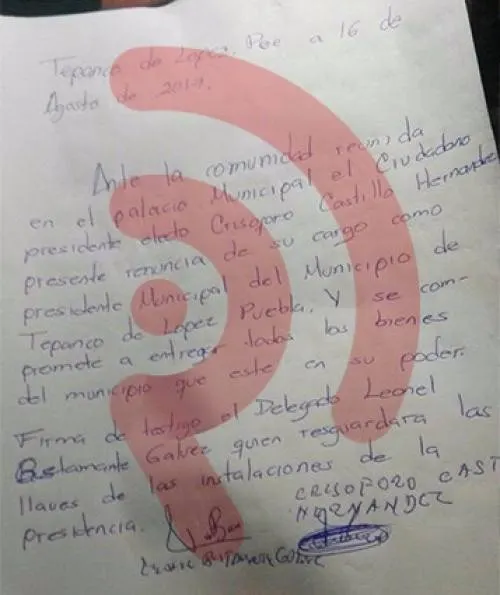 Tepanco de Lopez, Pue a 16 de
Agosto de 2019.
Ante la comunidad reunida
en el palacio Municipal el Ciudadano
presidente electo Crisoforo Castillo Hernandez
presente renuncia de su cargo como
presidente Municipal del Municipio de
Tepanco de Lopez Puebla. Y se com-
promete a entregar todos los bienes
del municipio que este en su poder.
Firma de testigo el Delegado Leonel
Bustamante Galvez quien resguardara las
llaves de las instalaciones de la
presidencia.
CRISOFORO CAST
HERNANDEZ